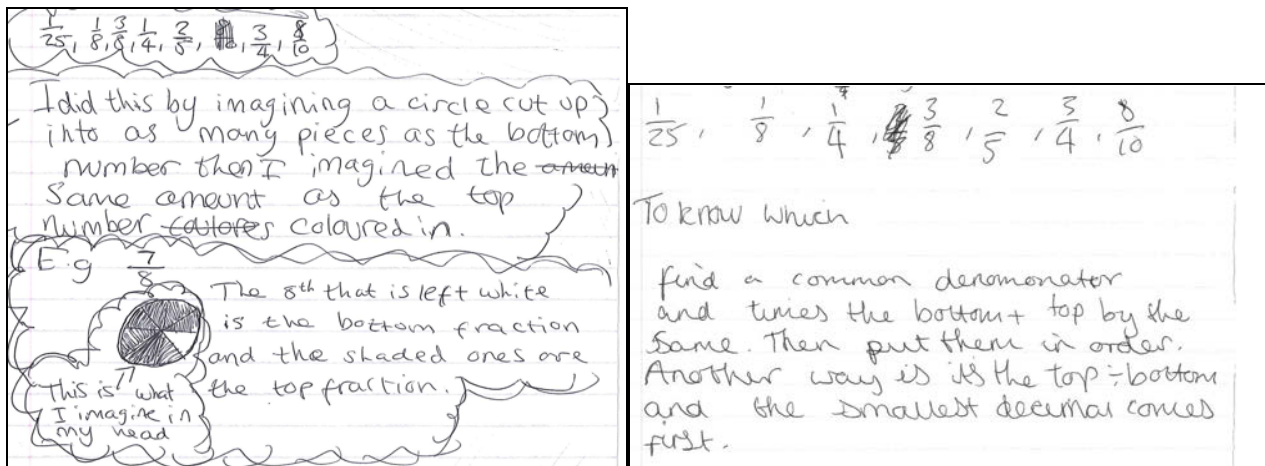 1/25, 1/8, 3/8, 1/4, 2/5, 3/4, 8/10
I did this by imagining a circle cut up
into as many pieces as the bottom
number then I imagined the
same amount as the top
number coloured in.
E.g 7/8
The 8th that is left white
is the bottom fraction
and the shaded ones are
the top fraction.
This is what
I imagine in
my head
1/25, 1/8, 1/4, 3/8, 2/5, 3/4, 8/10
To know which
find a common denomonator
and times the bottom + top by the
same. Then put them in order.
Another way is its the top ÷ bottom
and the smallest decimal comes
first.